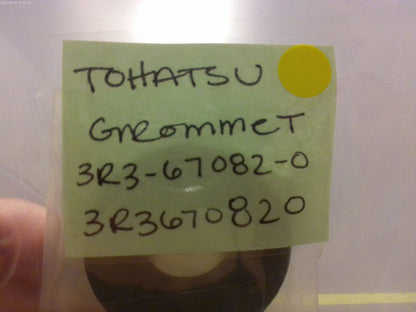 TOHATSU
GROMMET
3R3-67082-0
3R3670820